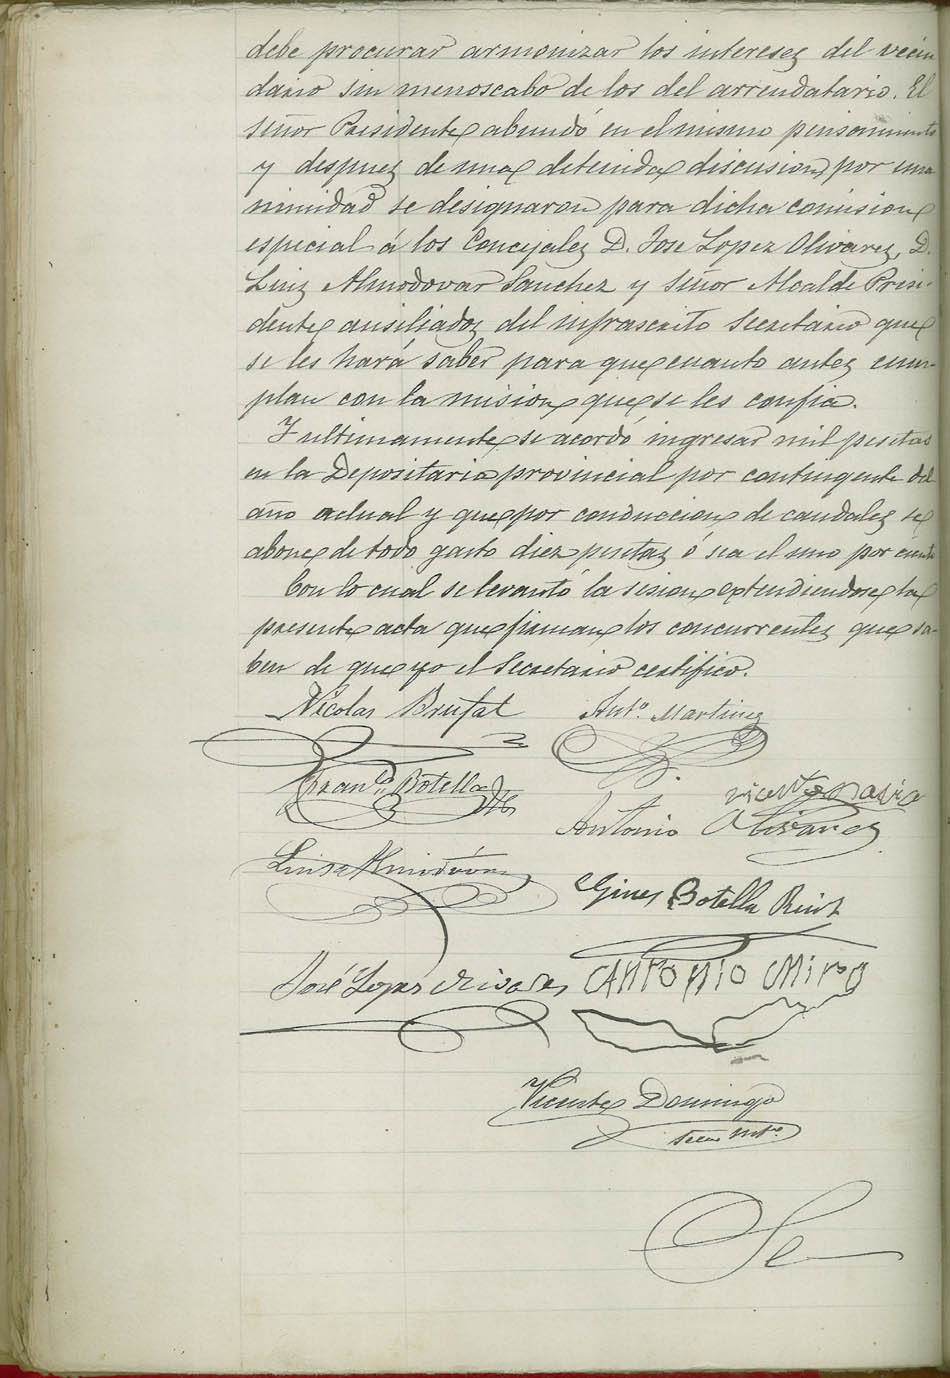 debe procurar armonizar los intereses del vecin
dario sin menoscabo de los del arrendatario. El
señor Presidente abundó en el mismo pensamiento
y despues de una detenida discusion, por una
nimidad se designaron para dicha comision
especial á los Concejales D. Jose Lopez Olivares, D.
Luis Almodovar Sanchez y señor Alcalde Presi-
dente ausiliados del infrascrito Secretario que
se les hará saber para que cuanto antes cum-
plan con la mision que se les confia.
Y ultimamente se acordó ingresar mil pesetas
en la Depositaria provincial por contingente del
año actual y que por conduccion de caudales se
abone de todo gasto diez pesetas ó sea el uno por ciento
Con lo cual se levantó la sesion extendiendose la
presente acta que firman los concurrentes que sa-
ben de que yo el Secretario certifico.
Nicolas Brufal Anto. Martinez
Franco. Botella
Vicente
Antonio Olivares
Luis Almodóvar
Gines Botella
José Lopez Olivares Antonio Miro
Vicente Domingo
Secro
Se